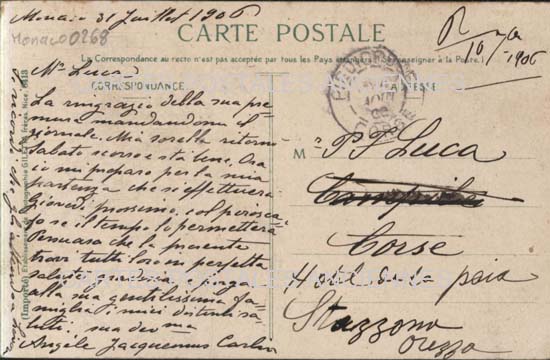 Monaco 31 Juillet 1906
Monaco 0268
CARTE POSTALE
La Correspondance au recto n'est pas acceptée par tous les Pays étrangers (Se renseigner à la Poste.)
CORRESPONDANCE
ADRESSE
R
10
1906
Mr Luca
La ringrazio della sua pre
mura mandandomi il
giornale. Mia sorella ritornò
Sabato scorso e sta bene. Ora
io mi preparo per la mia
partenza che si effettuerà
giovedì prossimo, col perosca
fo se il tempo lo permetterà
Persuaso che la presente
trovi tutti loro in perfetta
salute gradisca e porga
alla sua gentilissima fa
miglia i miei distinti sa
luti. sua
Angèle Jacquemus
M
P. F. Luca
Campile
Corse
Hotel de la paix
Stazzona
Orezza
(Importé) Etablissements de Photographie GILETTA frères, Nice